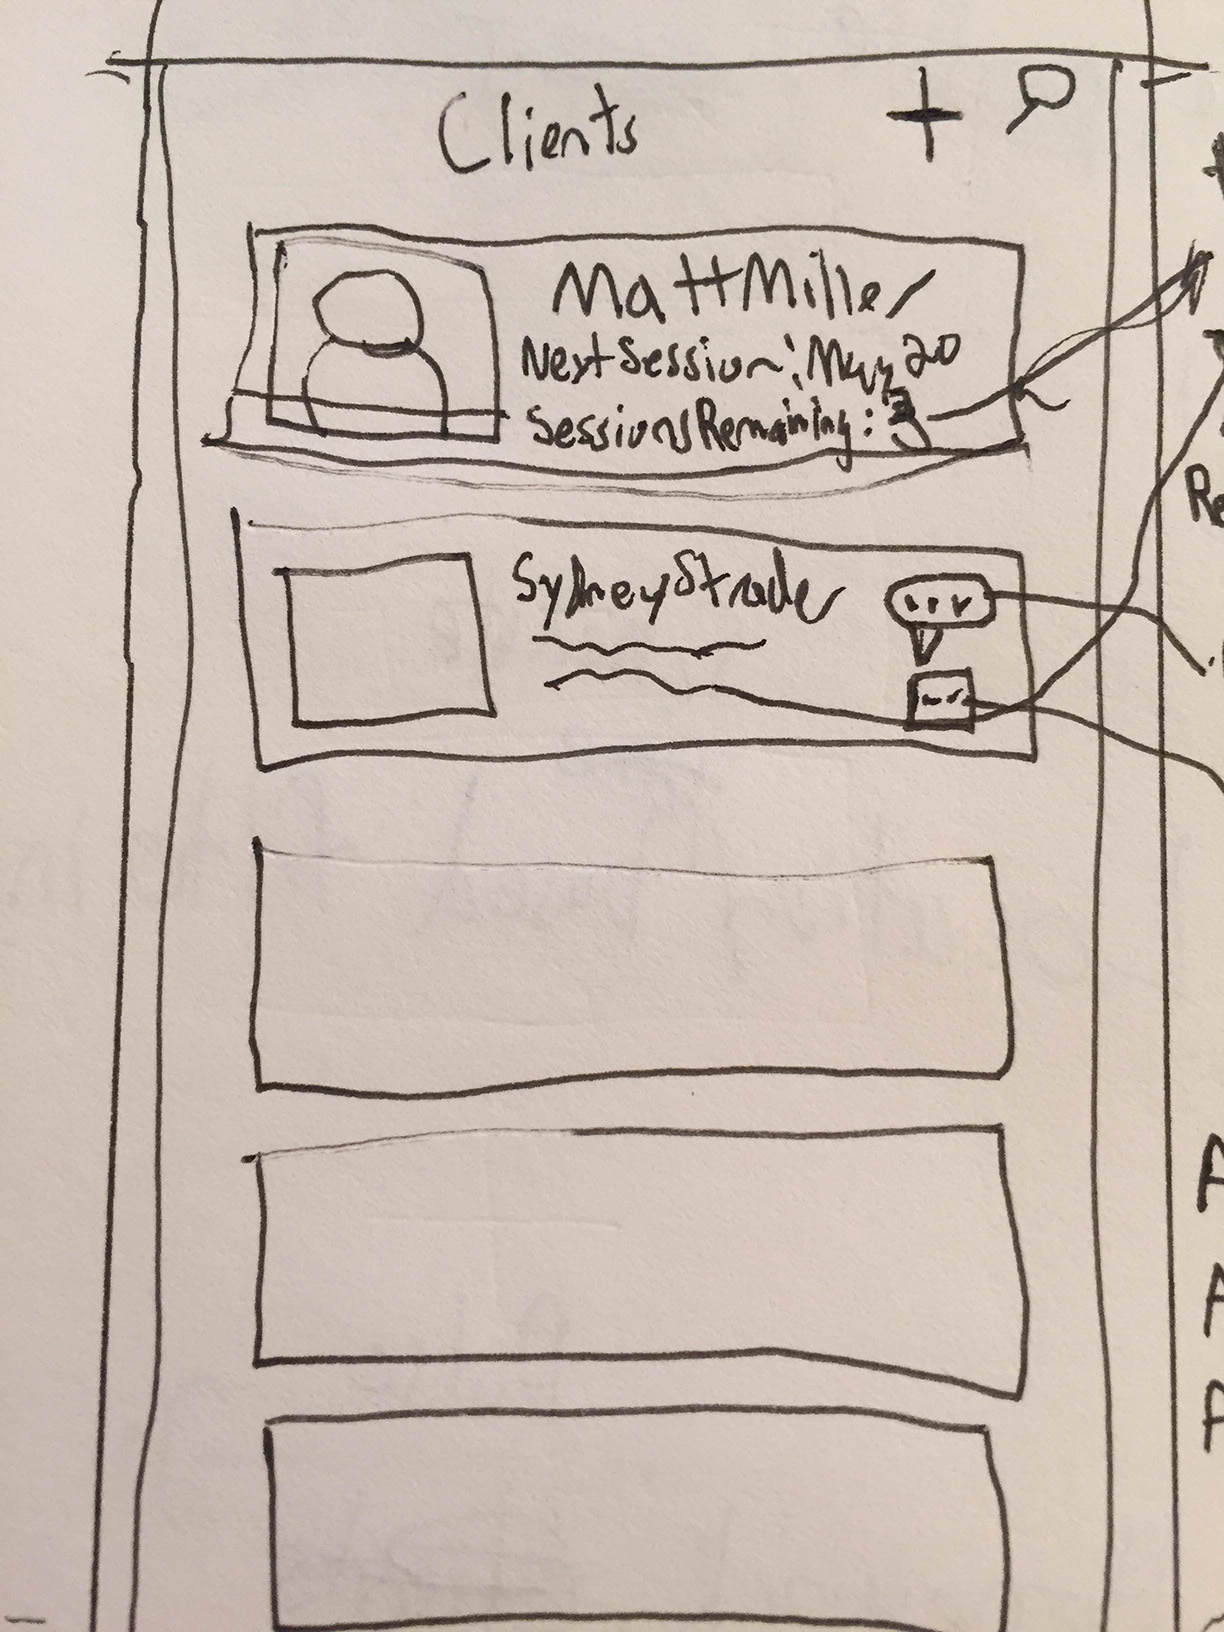 Clients
Matt Miller
Next Session: May 20
Sessions Remaining: 3
Re
Sydney Strader
A
A